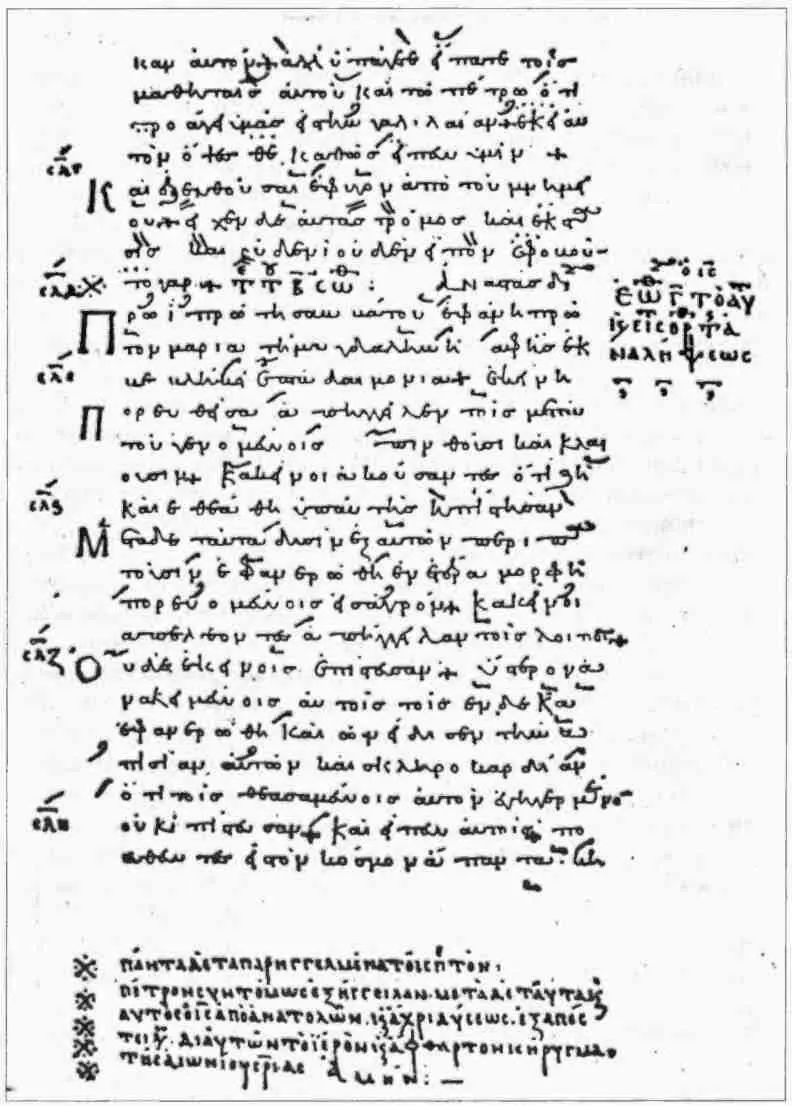 καν αὐτόν + ἀλλ' ὑπάγετε εἴπατε τοῖς
μαθηταῖς αὐτοῦ καὶ τῶ πέτρω ὅτι
προάγει ὑμᾶς εἰς τὴν γαλιλαίαν + ἐκεῖ αὐ
τὸν ὄψεσθε καθὼς εἶπεν ὑμῖν +
Καὶ ἐξελθοῦσαι ἔφυγον ἀπὸ τοῦ μνημεί
ου + εἶχεν δὲ αὐτὰς τρόμος καὶ ἔκστα
σις καὶ οὐδενὶ οὐδὲν εἶπον ἐφοβοῦν
σλδ το γὰρ + ἀναστὰς δὲ
Πρωῒ πρώτη σαββάτου ἐφάνη πρῶ
τον μαρία τῆ μαγδαληνῆ ἀφ' ἧς ἐκ
σλε βεβλήκει ἑπτὰ δαιμόνια + ἐκείνη
Πορευθεῖσα ἀπήγγειλεν τοῖς μετ' αὐ
τοῦ γενομένοις πενθοῦσι καὶ κλαί
ουσιν + κἀκεῖνοι ἀκούσαντες ὅτι ζῆ
σλϛ καὶ ἐθεάθη ὑπ' αὐτῆς ἠπίστησαν
Μετὰ δὲ ταῦτα δυσὶν ἐξ αὐτῶν περιπα
τοῦσιν ἐφανερώθη ἐν ἑτέρα μορφῆ
πορευομένοις εἰς ἀγρόν + κἀκεῖνοι
ἀπελθόντες ἀπήγγειλαν τοῖς λοιποῖς +
σλζ Οὐδὲ ἐκείνοις ἐπίστευσαν + ὕστερον ἀ
νακειμένοις αὐτοῖς τοῖς ἕνδεκα
ἐφανερώθη καὶ ὠνείδισεν τὴν ἀ
πιστίαν αὐτῶν καὶ σκληροκαρδίαν
ὅτι τοῖς θεασαμένοις αὐτὸν ἐγηγερμένον
σλη οὐκ ἐπίστευσαν + καὶ εἶπεν αὐτοῖς + πο
ρευθέντες εἰς τὸν κόσμον ἅπαντα κη
ἑωθ γ τὸ αυ
εἰς ἑορτ τ ἀ
ναλήψεως
πάντα δὲ τὰ παρηγγελμένα τοῖς π τὸν
πέτρον συντόμως ἐξήγγειλαν. μετὰ δὲ ταῦτα καὶ
αὐτὸς ὁ ις ἀπὸ ἀνατολῶν. καὶ ἄχρι δύσεως. ἐξαπέσ
τειλ δι' αὐτῶν τὸ ἱερὸν καὶ ἄφθαρτον κήρυγμα
τῆς αἰωνίου σριας ἀμήν: —